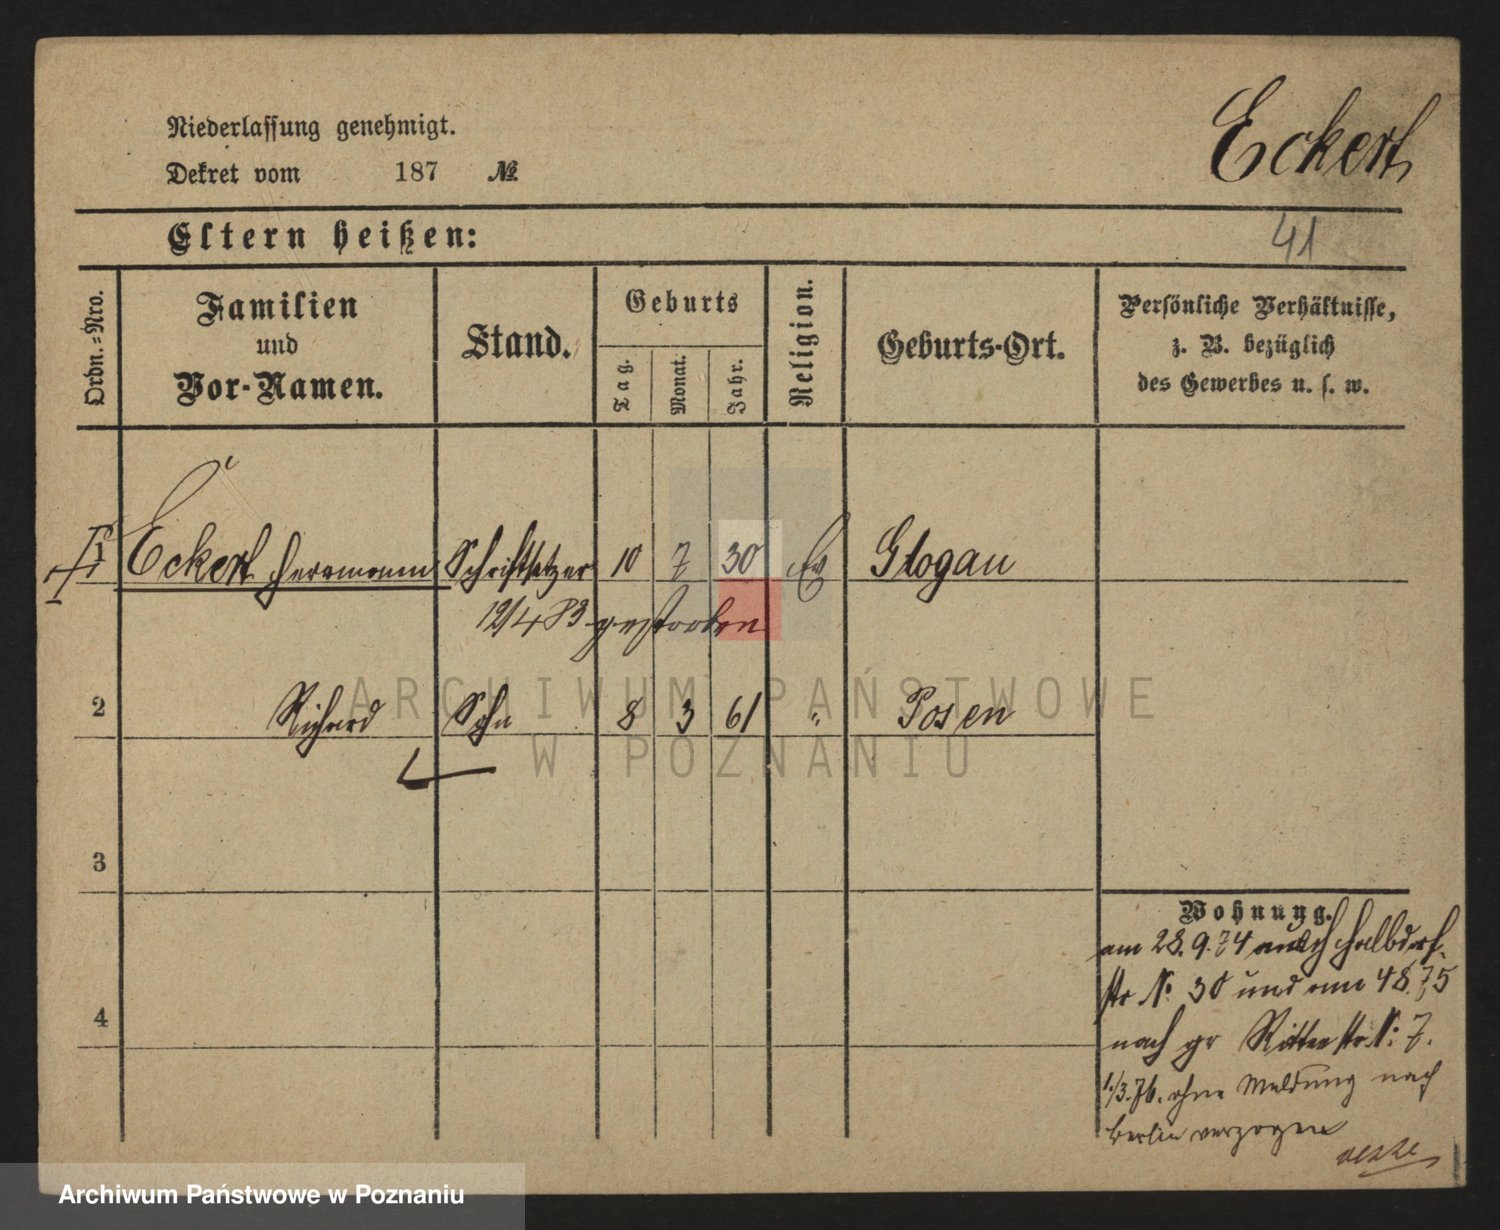 Eckert
Niederlassung genehmigt.
Dekret vom 187 №
Eltern heißen:
41
Ordn.-Nro.
Familien
und
Vor-Namen.
Stand.
Geburts
Tag.
Monat.
Jahr.
Religion.
Geburts-Ort.
Persönliche Verhältnisse,
z. B. bezüglich
des Gewerbes u. s. w.
1 Eckert Herrmann Schriftsetzer 10 7 30 Ev Glogau
12/4 83 gestorben
2 Richard Sohn 8 3 61 " Posen
3
4
Wohnung.
am 28.9.74 nach Halbdorf-
str No. 30 und am 4 8.75
nach gr Ritterstr No: 7.
1./3.76. ohne Meldung nach
Berlin verzogen
ARCHIWUM PAŃSTWOWE
W POZNANIU
Archiwum Państwowe w Poznaniu